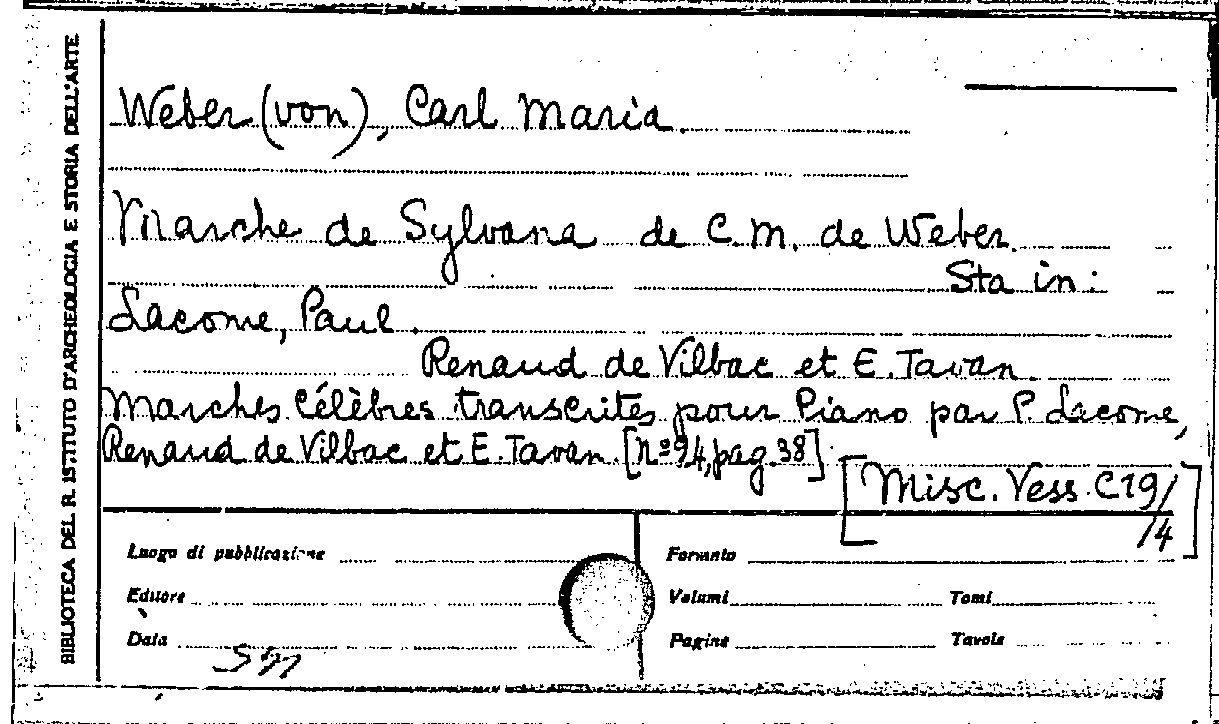 BIBLIOTECA DEL R. ISTITUTO D'ARCHEOLOGIA E STORIA DELL'ARTE
Weber (von), Carl Maria.
Marche de Sylvana de C. M. de Weber.
Sta in:
Lacome, Paul.
Renaud de Vilbac et E. Tavan
Marches Célèbres transcrites pour Piano par P. Lacome,
Renaud de Vilbac et E. Tavan [Nº 94, pag. 38]
[Misc. Vess. C 19/
/4]
Luogo di pubblicazione
Editore
Data
Formato
Volumi Tomi
Pagine Tavole